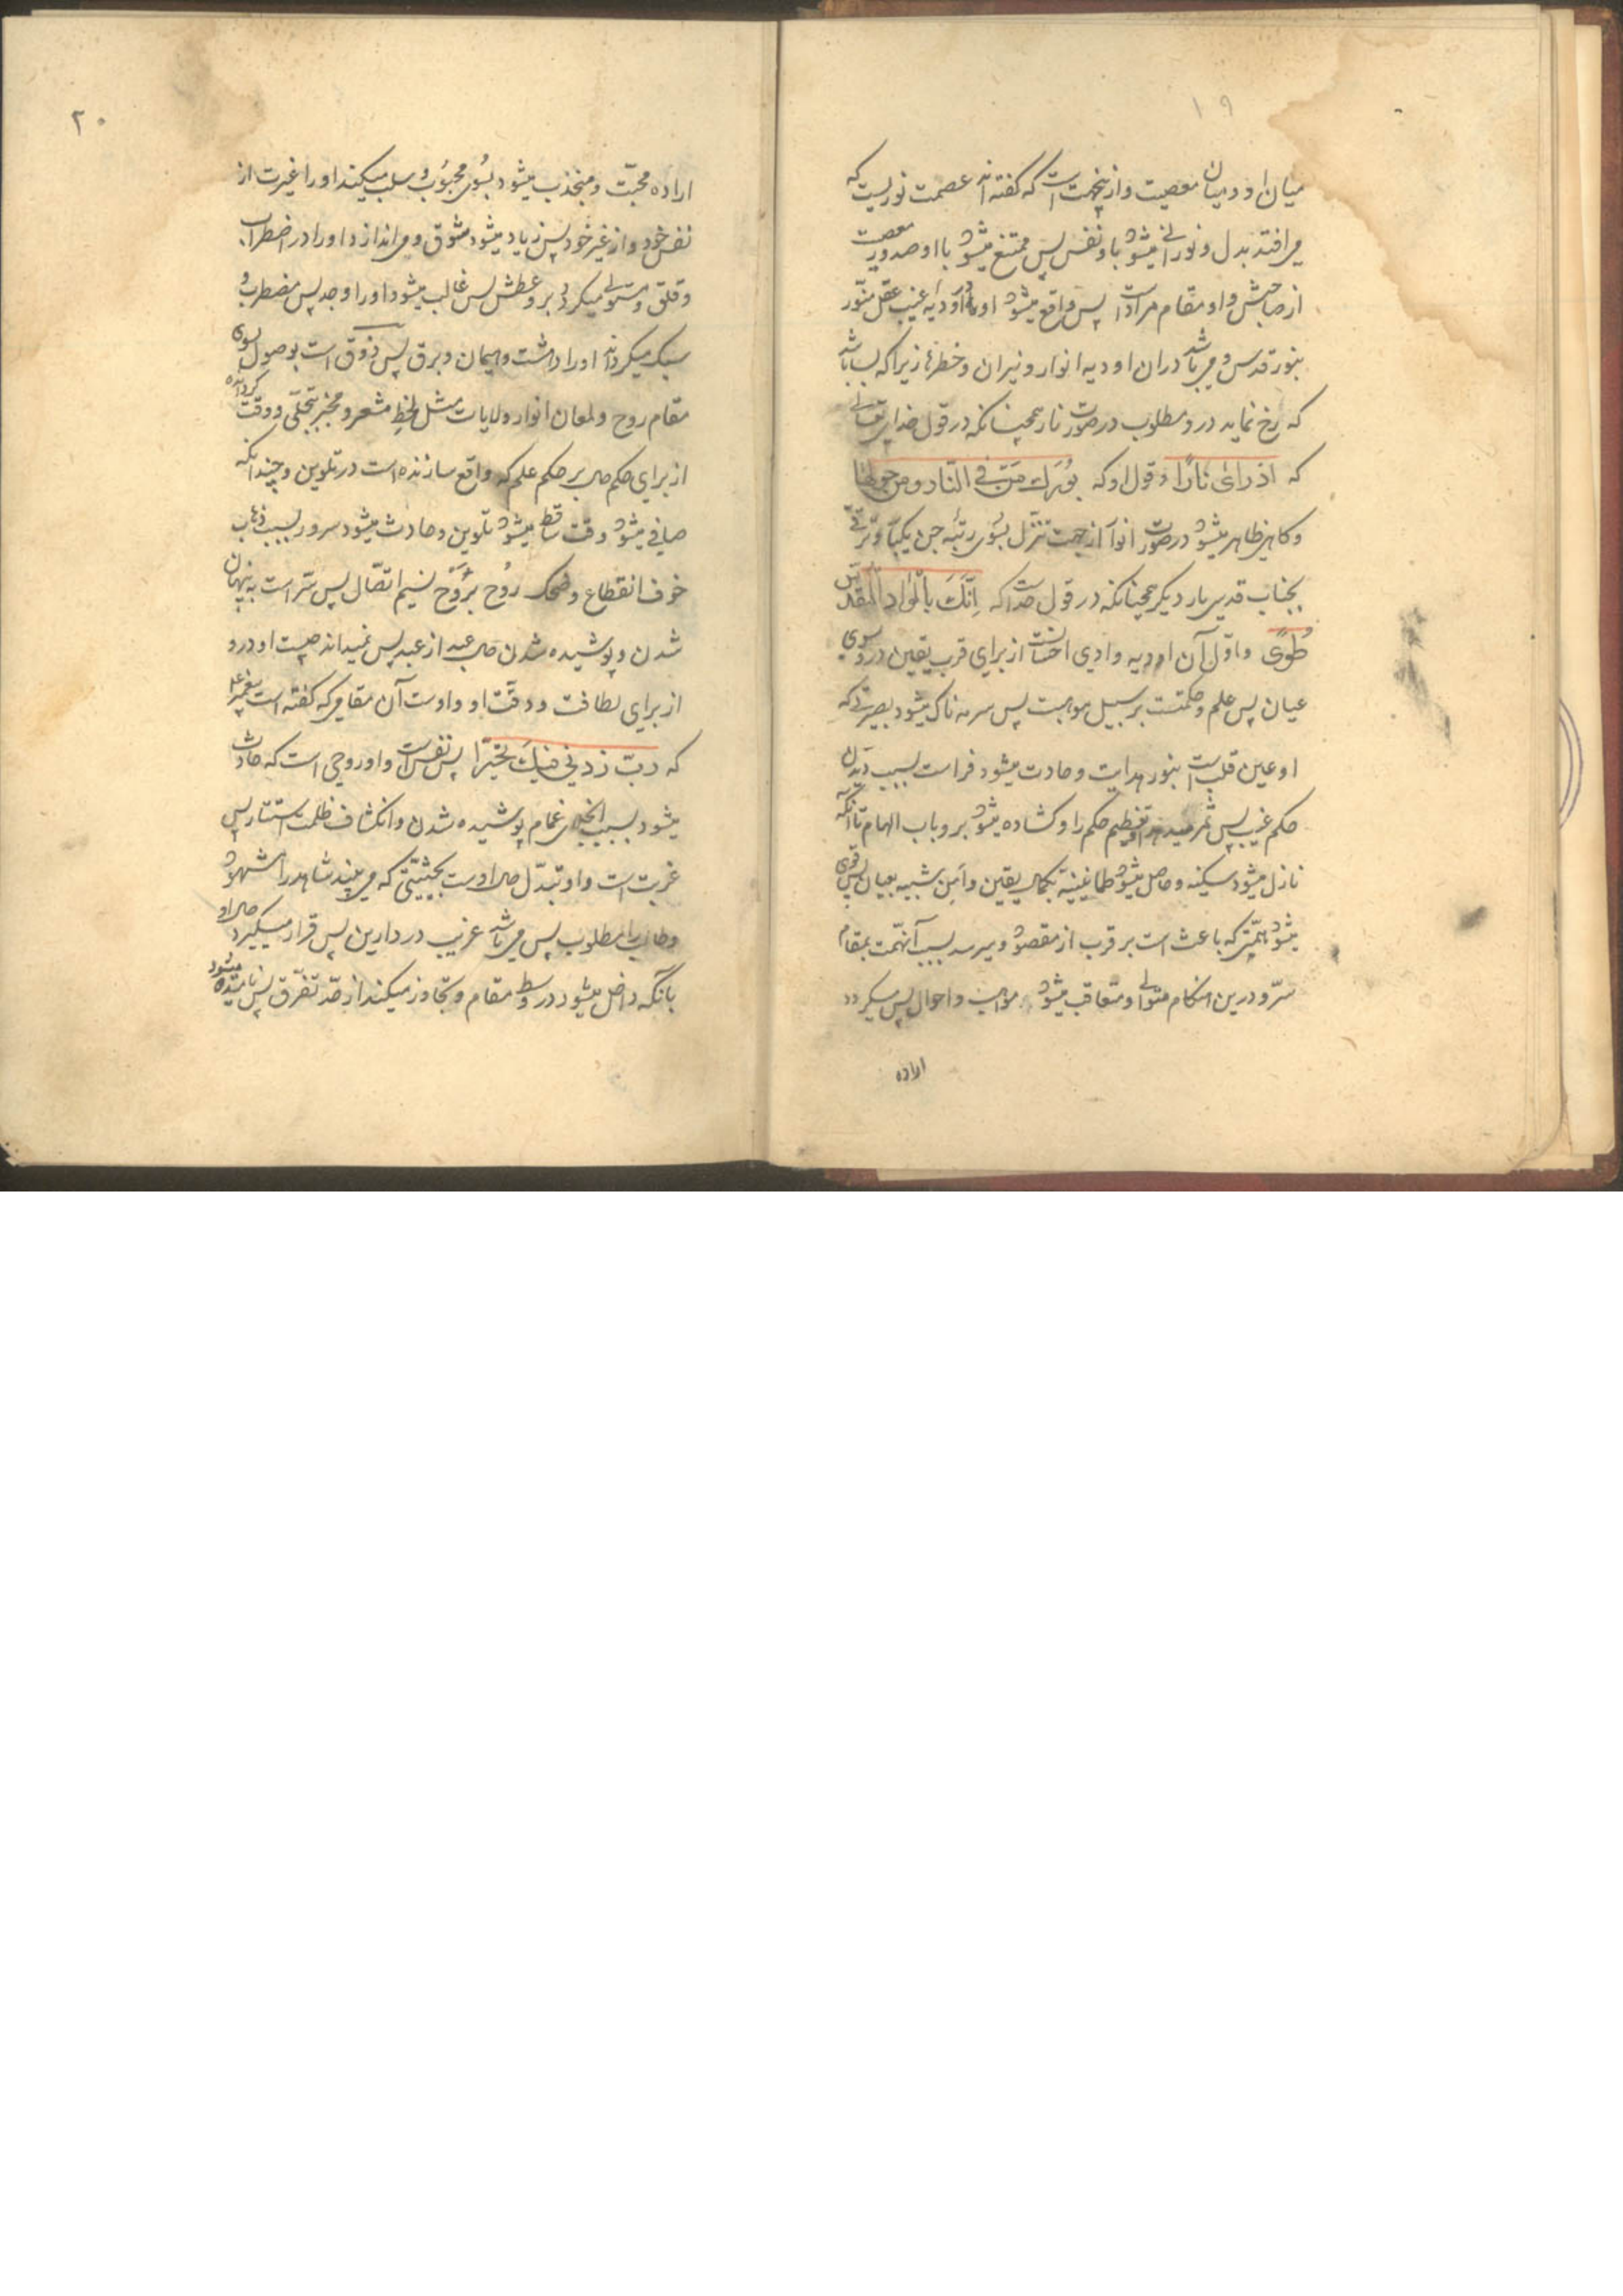 ۱۹
میان او و میان معصیت و ازینجهت است که گفته اند عصمت نوریست که
می افتد بدل و نورانی میشود باو نفس پس ممتنع میشود با او صدور معصیت
از صاحبش و او مقام مراد است پس واقع میشود او در اودیه غیب عقل منور
بنور قدس و می باشد دران اودیه انوار و نیران و خطرها زیرا که بسا باشد
که رخ نماید درو مطلوب در صورت نار همچنانکه در قول خدای تعالی
که اذ رای نارًا و قول او که بُورِكَ مَن فی النّار و من حولها
و کاهی ظاهر میشود در صورت انوار از جهت تنزل بسوی رتبه جن یکبار و ترقی
بجناب قدسی بار دیکر همچنانکه در قول خداست که اِنَّكَ بِالْوادِ الْمُقَدَّسِ
طُوًی و اوّل آن اودیه وادی احسانست از برای قرب یقین درو بسوی
عیان پس علم و حکمتست بر سبیل موهبت پس سرمه ناک میشود بصیرتی که
او عین قلب است بنور هدایت و حادث میشود فراست بسبب دیدن
حکم غیب پس ثمر میدهد تعظیم حکم را و کشاده میشود برو باب الهام تا آنکه
نازل میشود سکینه و حاصل میشود طمانینة بکمال یقین و امن شبیه بعیان پس قوی
میشود همّتی که باعث است بر قرب از مقصود و میرسد بسبب آن همّت بمقام
سرّ و درین هنکام متوالی و متعاقب میشود مواهب و احوال پس میکردد
اراده
۲۰
اراده محبّت و منجذب میشود بسوی محبوب و سلب میکند او را غیرت از
نفس خود و از غیر خود پس زیاد میشود شوق و می اندازد او را در اضطراب
و قلق و مستولی میکردد برو عطش پس غالب میشود او را وجد پس مضطرب و
سبک میکرداند او را دهشت و هیمان و برق پس ذوق است بوصول بسوی
مقام روح و لمعان انوار ولایات مثل لحظ مشعر و مخبر بتجلّی و وقت
از برای حکم حال بر حکم علم که واقع سازنده است در تلوین و چندانکه
صافی میشود وقت ساقط میشود تلوین و حادث میشود سرور بسبب ذهاب
خوف انقطاع و ضحک رُوح برَوح نسیم اتّصال پس سرّ است به پنهان
شدن و پوشیده شدن حال عبد از عبد پس نمیداند چیست او درو
از برای لطافت و دقّت او و اوست آن مقامی که گفته است پیغمبر
که ربّ زدنی فیكَ تحیّرًا پس نفس است و او روحی است که حادث
میشود بسبب انجلای غمام پوشیده شدن و انکشاف ظلمت استتار پس
غربت است و او تبدّل حال اوست بحیثیّتی که می بیند شاهد را مشهود
و طالب را مطلوب پس می باشد غریب در دارین پس قرار میکیرد حال او
بانکه داخل میشود در وسط مقام و تجاوز میکند از حد تفرّق پس نامیده میشود